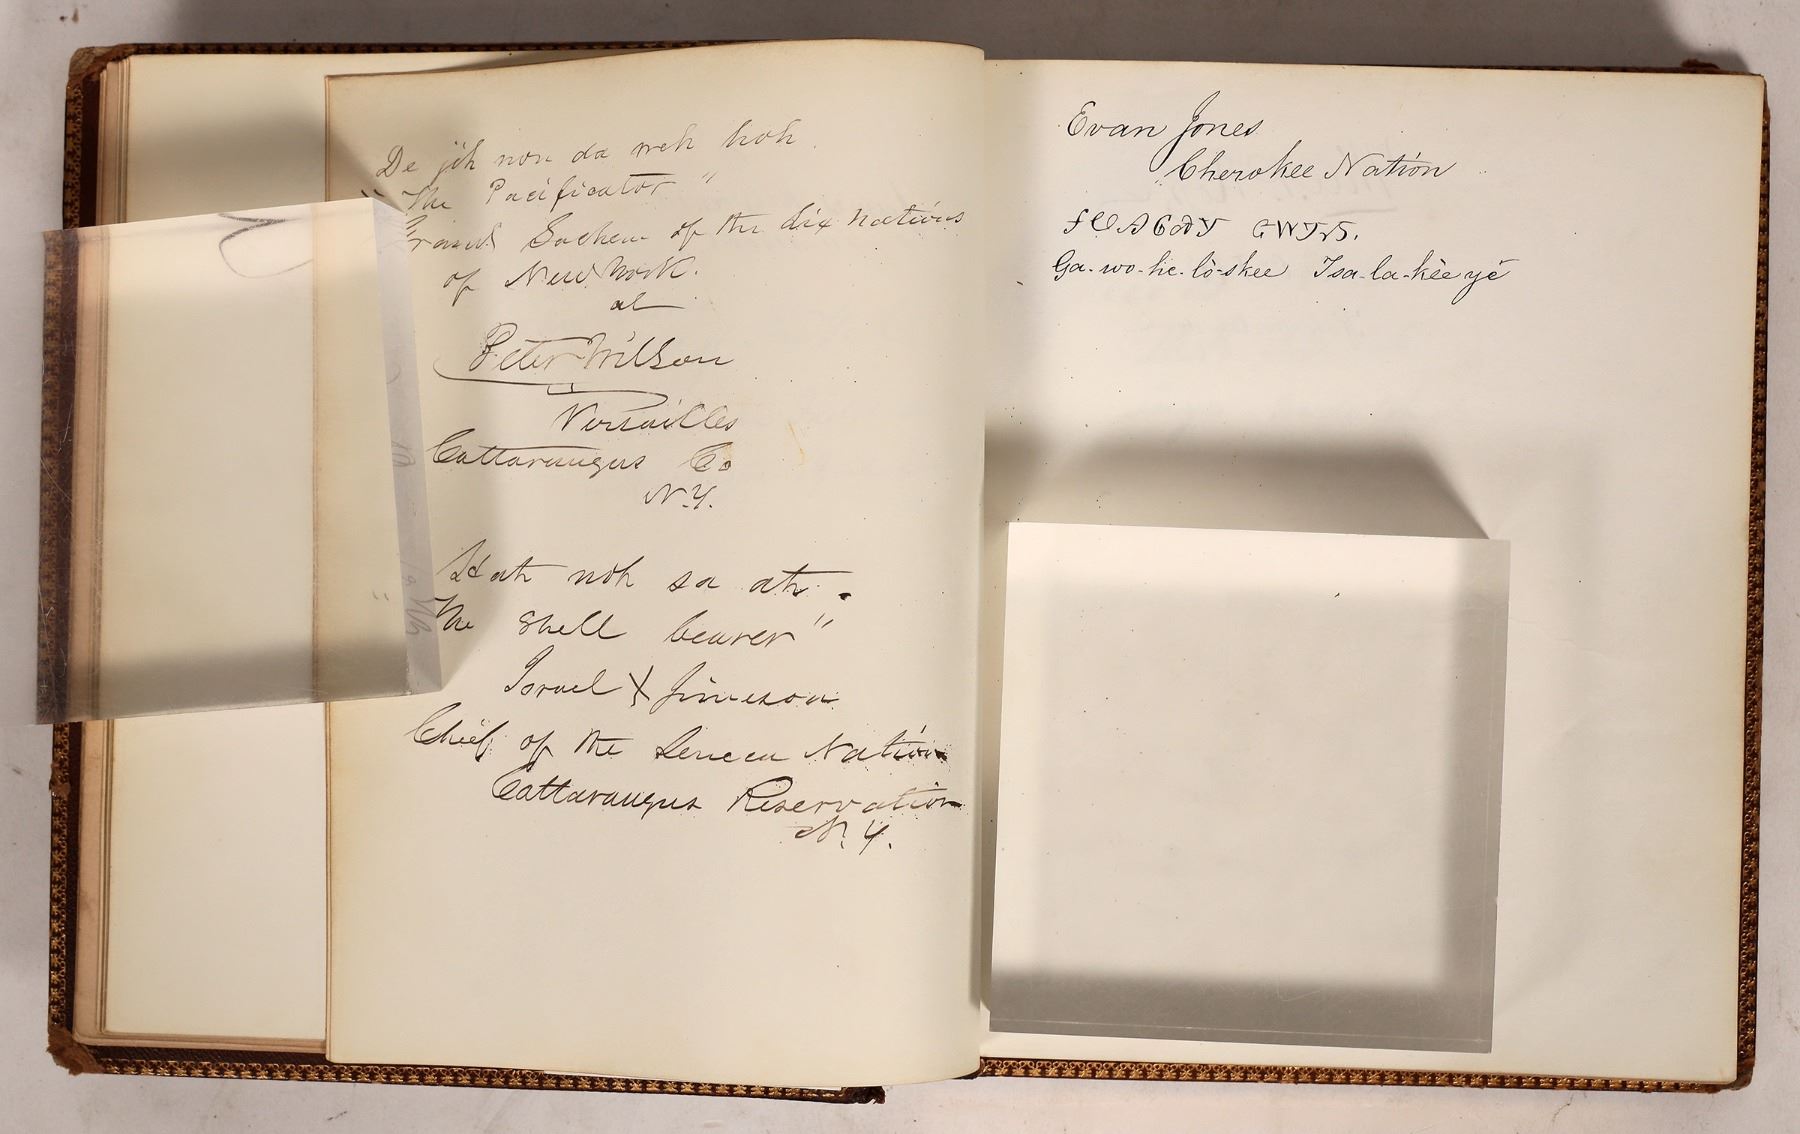 De jih non da weh hoh.
"The Pacificator"
Grand Sachem of the Six Nations
of New York.
al
Peter Wilson
Versailles
Cattaraugus Co
N.Y.
Hah noh sa ah.
"The Shell bearer"
Israel X Jimeson
Chief of the Seneca Nation
Cattaraugus Reservation
N.Y.
Evan Jones
Cherokee Nation
ᎦᏬᎯᎶᏍᎩ ᏣᎳᎩᏱ.
Ga-wo-he-lò-skee Tsa-la-kèe yé